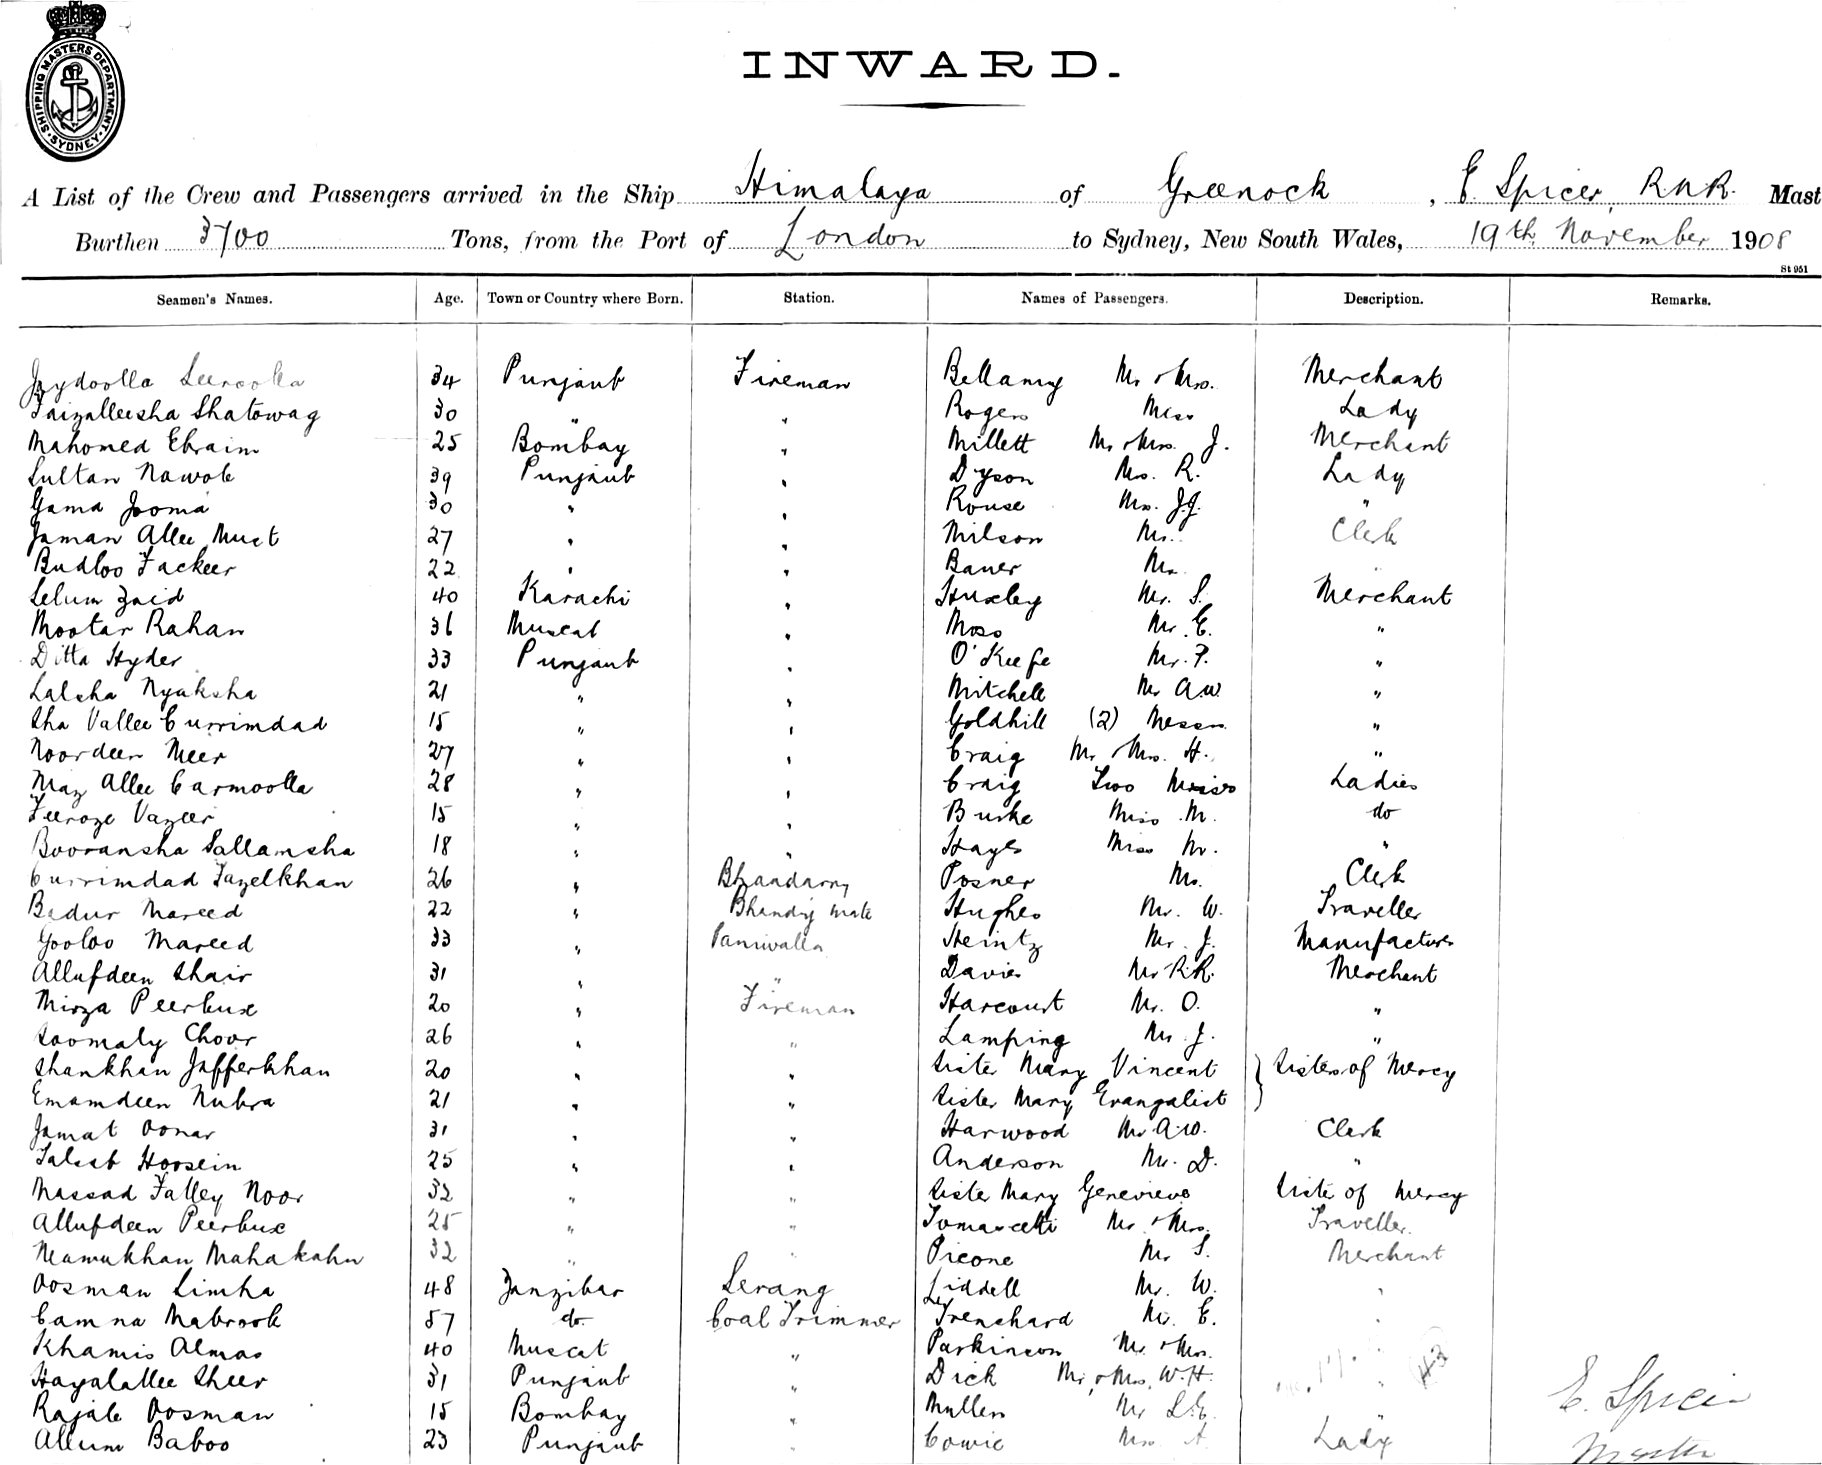 SHIPPING MASTERS DEPARTMENT. SYDNEY
INWARD.
A List of the Crew and Passengers arrived in the Ship Himalaya of Greenock, E. Spicer, R.N.R. Mast
Burthen 3700 Tons, from the Port of London to Sydney, New South Wales, 19th November 1908
St 951
Seamen's Names. Age. Town or Country where Born. Station. Names of Passengers. Description. Remarks.
34 Punjaub Fireman Bellamy Mr & Mrs. Merchant
Faizalleesha Shatowag 30 " " Rogers Miss Lady
Mahomed Ebraim 25 Bombay " Millett Mr & Mrs. J. Merchant
Sultan Nawob 39 Punjaub " Dyson Mrs. R. Lady
Gama Jooma 30 " " Rouse Mrs. J.J. "
Jaman Allee Must 27 " " Milson Mr. Clerk
Budloo Fackeer 22 " " Bauer Mr. "
Selum Zaid 40 Karachi " Huxley Mr. S. Merchant
Mootar Rahan 36 Muscat " Moss Mr. E. "
Ditta Hyder 33 Punjaub " O'Keefe Mr. F. "
Lalsha Nyaksha 21 " " Mitchell Mr A.W. "
Sha Vallee Currimdad 15 " " Goldhill (2) Messrs "
Noordeen Meer 27 " " Craig Mr & Mrs. H. "
Niaz Allee Carmoolla 28 " " Craig Two Misses Ladies
Feeroze Vazeer 15 " " Burke Miss M. do
Booransha Sallamsha 18 " " Hayes Miss M. "
Currimdad Fazelkhan 26 " Bhandarry Posner Mr. Clerk
Badur Mareed 22 " Bhandy mate Hughes Mr. W. Traveller
Gooloo Mareed 33 " Paniwalla Heintz Mr. J. Manufacturer
Allufdeen Shair 31 " " Davies Mr R.R. Merchant
Mirza Peerbux 20 " Fireman Harcourt Mr. O. "
Soomaly Choor 26 " " Lamping Mr. J. "
Shankhan Jafferkhan 20 " " Sister Mary Vincent } Sisters of Mercy
Emamdeen Nubra 21 " " Sister Mary Evangalist
Jamat Oonar 31 " " Harwood Mr A.W. Clerk
Taleeb Hoosein 25 " " Anderson Mr. D. "
Massad Falley Noor 32 " " Sister Mary Genevieve Sister of Mercy
Allufdeen Peerbux 25 " " Mr & Mrs. Traveller
Neamukhan Mahakahn 32 " " Picone Mr S. Merchant
Oosman Simha 48 Zanzibar Serang Liddell Mr. W. "
Camna Mabrook 57 do. Coal Trimmer Trenchard Mr. E. "
Khamis Almas 40 Muscat " Parkinson Mr. & Mrs.
Hayalallee Sheer 31 Punjaub " Dick Mr. & Mrs. W.H. "
Rajab Oosman 15 Bombay " Mullen Mr L.E. E. Spicer
Allum Baboo 23 Punjaub " Cowie Mrs A. Lady Master